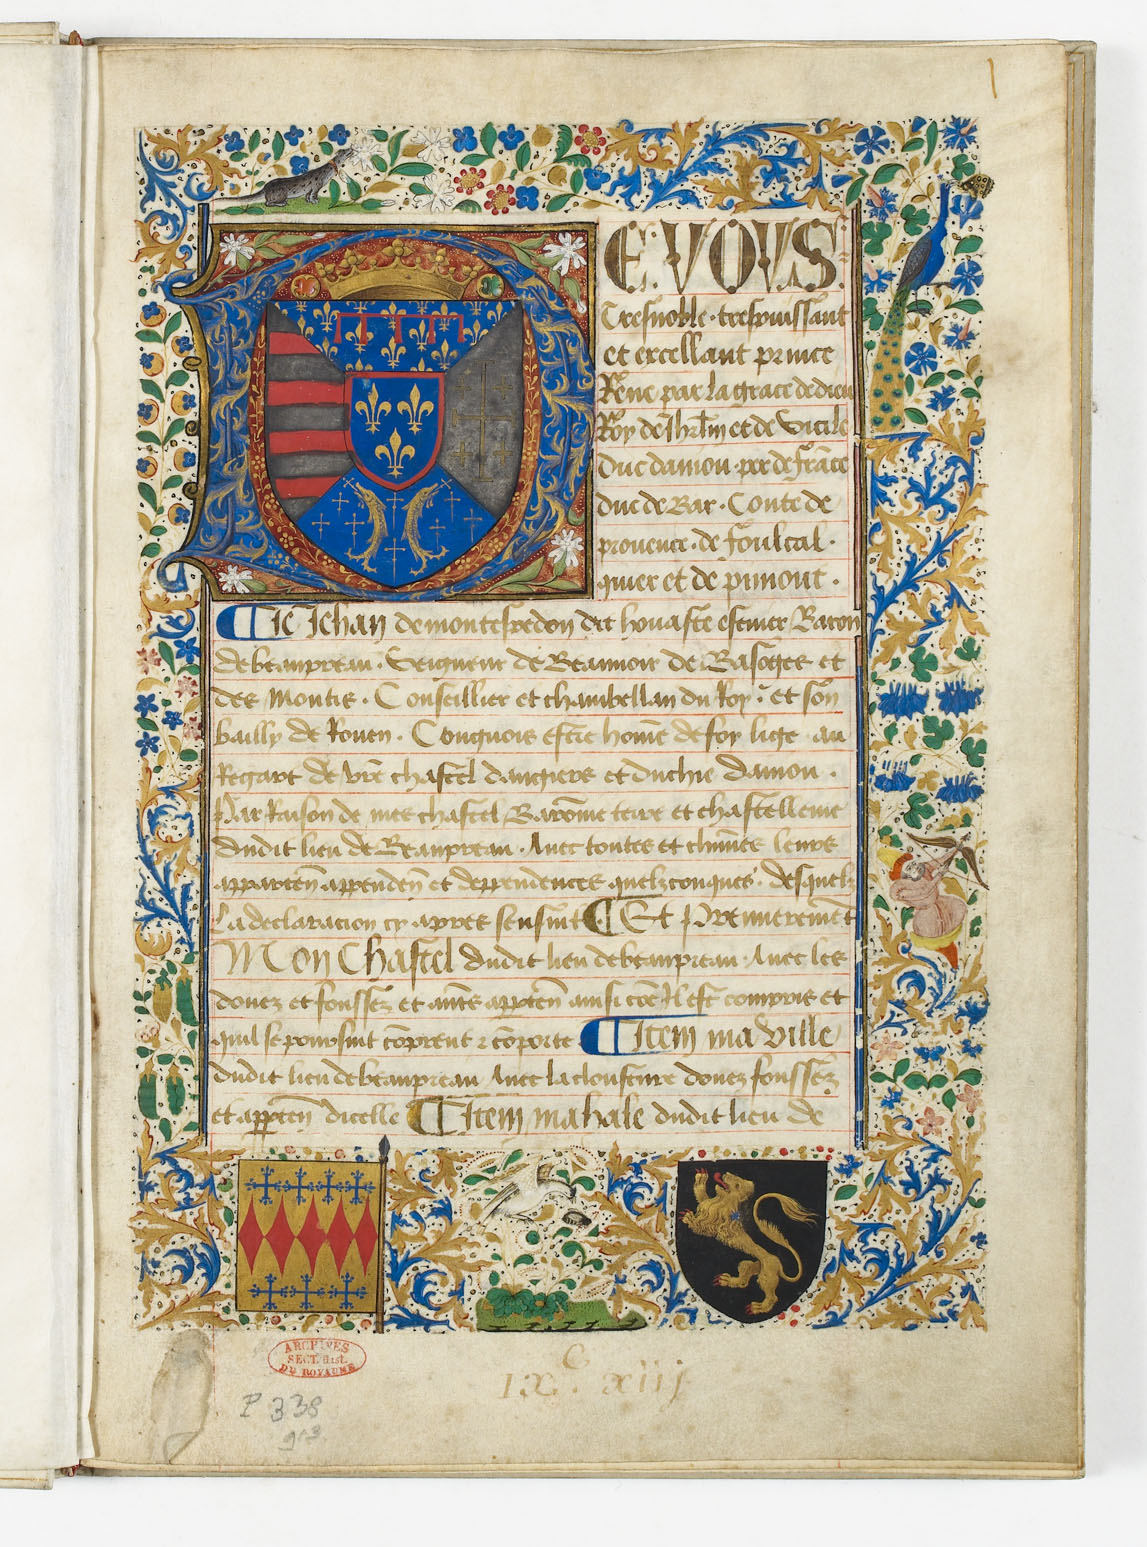 1
DE VOUS
Tresnoble · trespuissant
et excellant prince
Rene par la grace de dieu
Roy de Jhrlm et de Sicile
duc daniou · per de france
duc de Bar · Conte de
prouence · de foulcal ·
quier et de pimont ·
Je Jehan de montespedon dit houaste escuier Baron
de beaupreau · Seigneur de Beaumoir de Basoges et
des Montis · Conseillier et chambellan du Roy · et son
bailly de Rouen · Congnois estre home de foy lige au
Regart de vre chastel dangiers et duchie daniou ·
Par Raison de mes chastel Baronie terre et chastellenie
dudit lieu de Beaupreau · Auec toutes et chunes leurs
apparten appenden et deppendences quelzconques · desquelz
la declaracion cy apres sensuit Et Premierement
Mon Chastel dudit lieu de beaupreau · Auec les
douez et foussez et autres apparten ainsi coe Il est compris et
quil se poursuit coprent z coporte Item ma ville
dudit lieu de beaupreau Auec la clousture douez foussez
et apparten dicelle Item ma hale dudit lieu de
ARCHIVES
SECT. Hist.
DU ROYAUME
IX C xiij
P 338
913